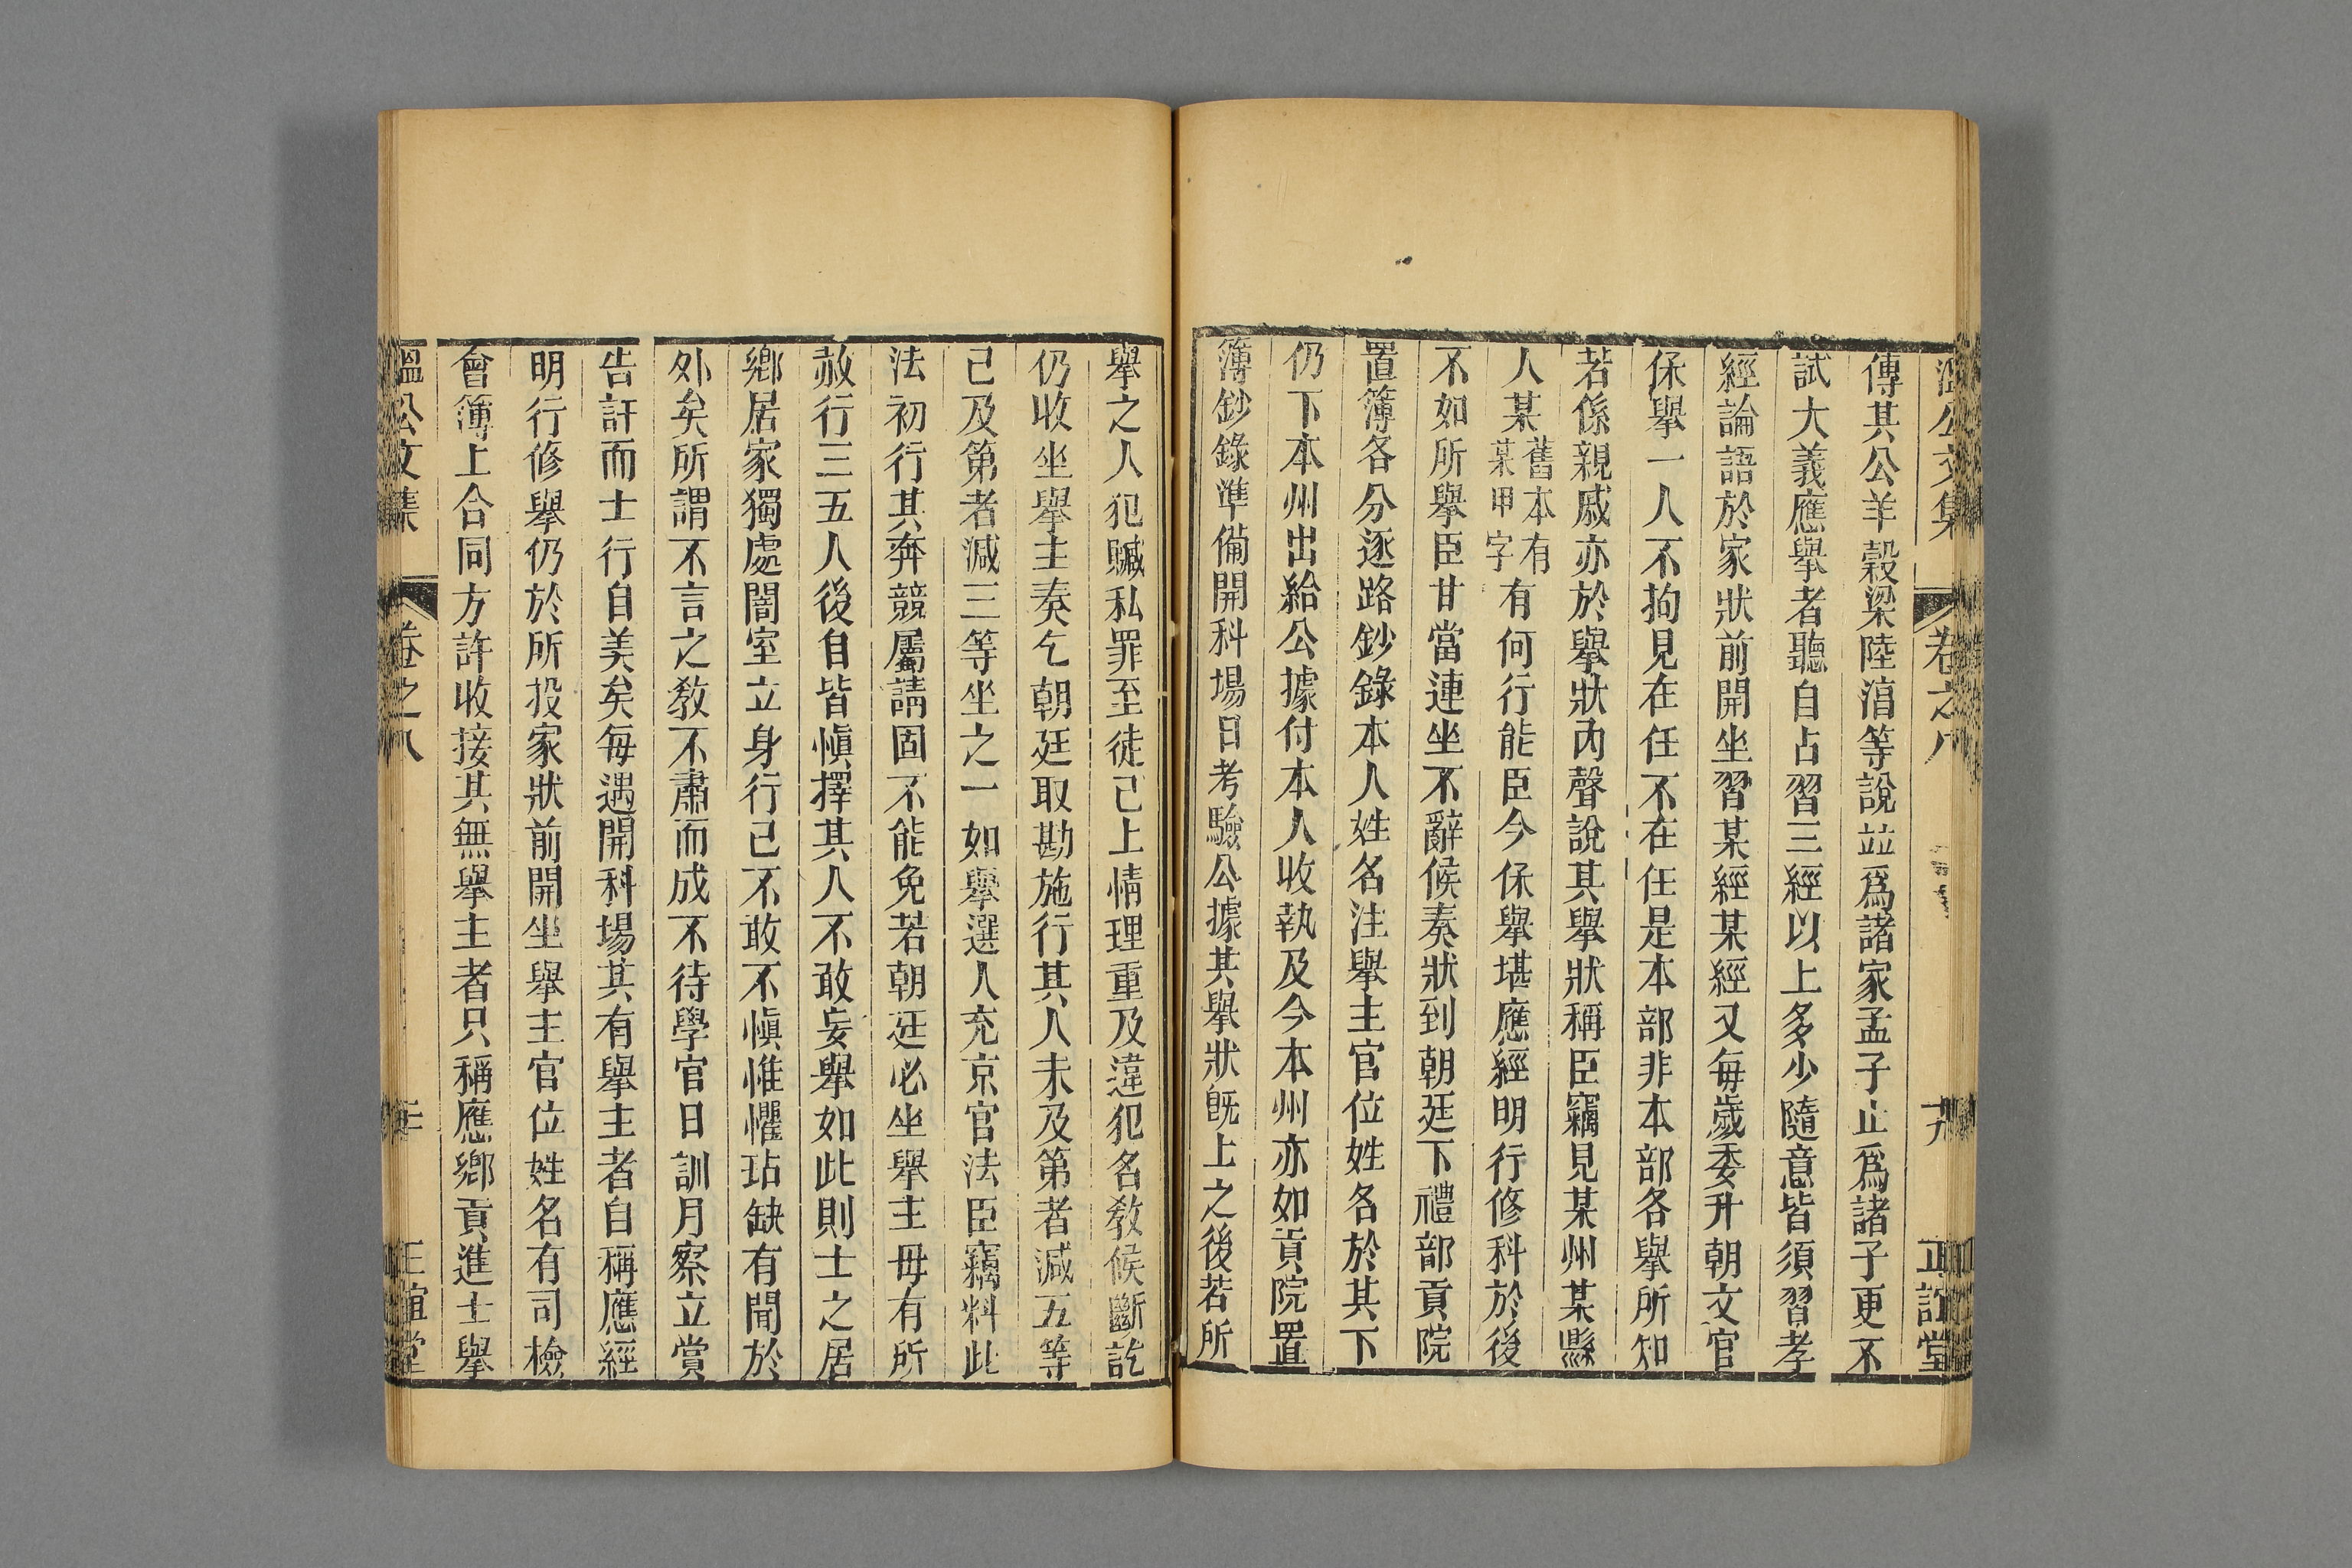 溫公文集 卷之八 十九 正誼堂
傳其公羊穀梁陸湻等說竝爲諸家孟子止爲諸子更不
試大義應舉者聽自占習三經以上多少隨意皆須習孝
經論語於家狀前開坐習某經某經又每歲委升朝文官
保舉一人不拘見在任不在任是本部非本部各舉所知
若係親戚亦於舉狀內聲說其舉狀稱臣竊見某州某縣
人某舊本有某甲字有何行能臣今保舉堪應經明行修科於後
不如所舉臣甘當連坐不辭候奏狀到朝廷下禮部貢院
置簿各分逐路鈔錄本人姓名注舉主官位姓名於其下
仍下本州出給公據付本人收執及今本州亦如貢院置
簿鈔錄準備開科場日考驗公據其舉狀旣上之後若所
舉之人犯贓私罪至徒已上情理重及違犯名敎候斷訖
仍收坐舉主奏乞朝廷取勘施行其人未及第者減五等
已及第者減三等坐之一如舉選人充京官法臣竊料此
法初行其奔競屬請固不能免若朝廷必坐舉主毋有所
赦行三五人後自皆愼擇其人不敢妄舉如此則士之居
鄉居家獨處闇室立身行己不敢不愼惟懼玷缺有聞於
外矣所謂不言之敎不肅而成不待學官日訓月察立賞
告訐而士行自美矣每遇開科場其有舉主者自稱應經
明行修舉仍於所投家狀前開坐舉主官位姓名有司檢
會簿上合同方許收接其無舉主者只稱應鄉貢進士舉
溫公文集 卷之八 二十 正誼堂